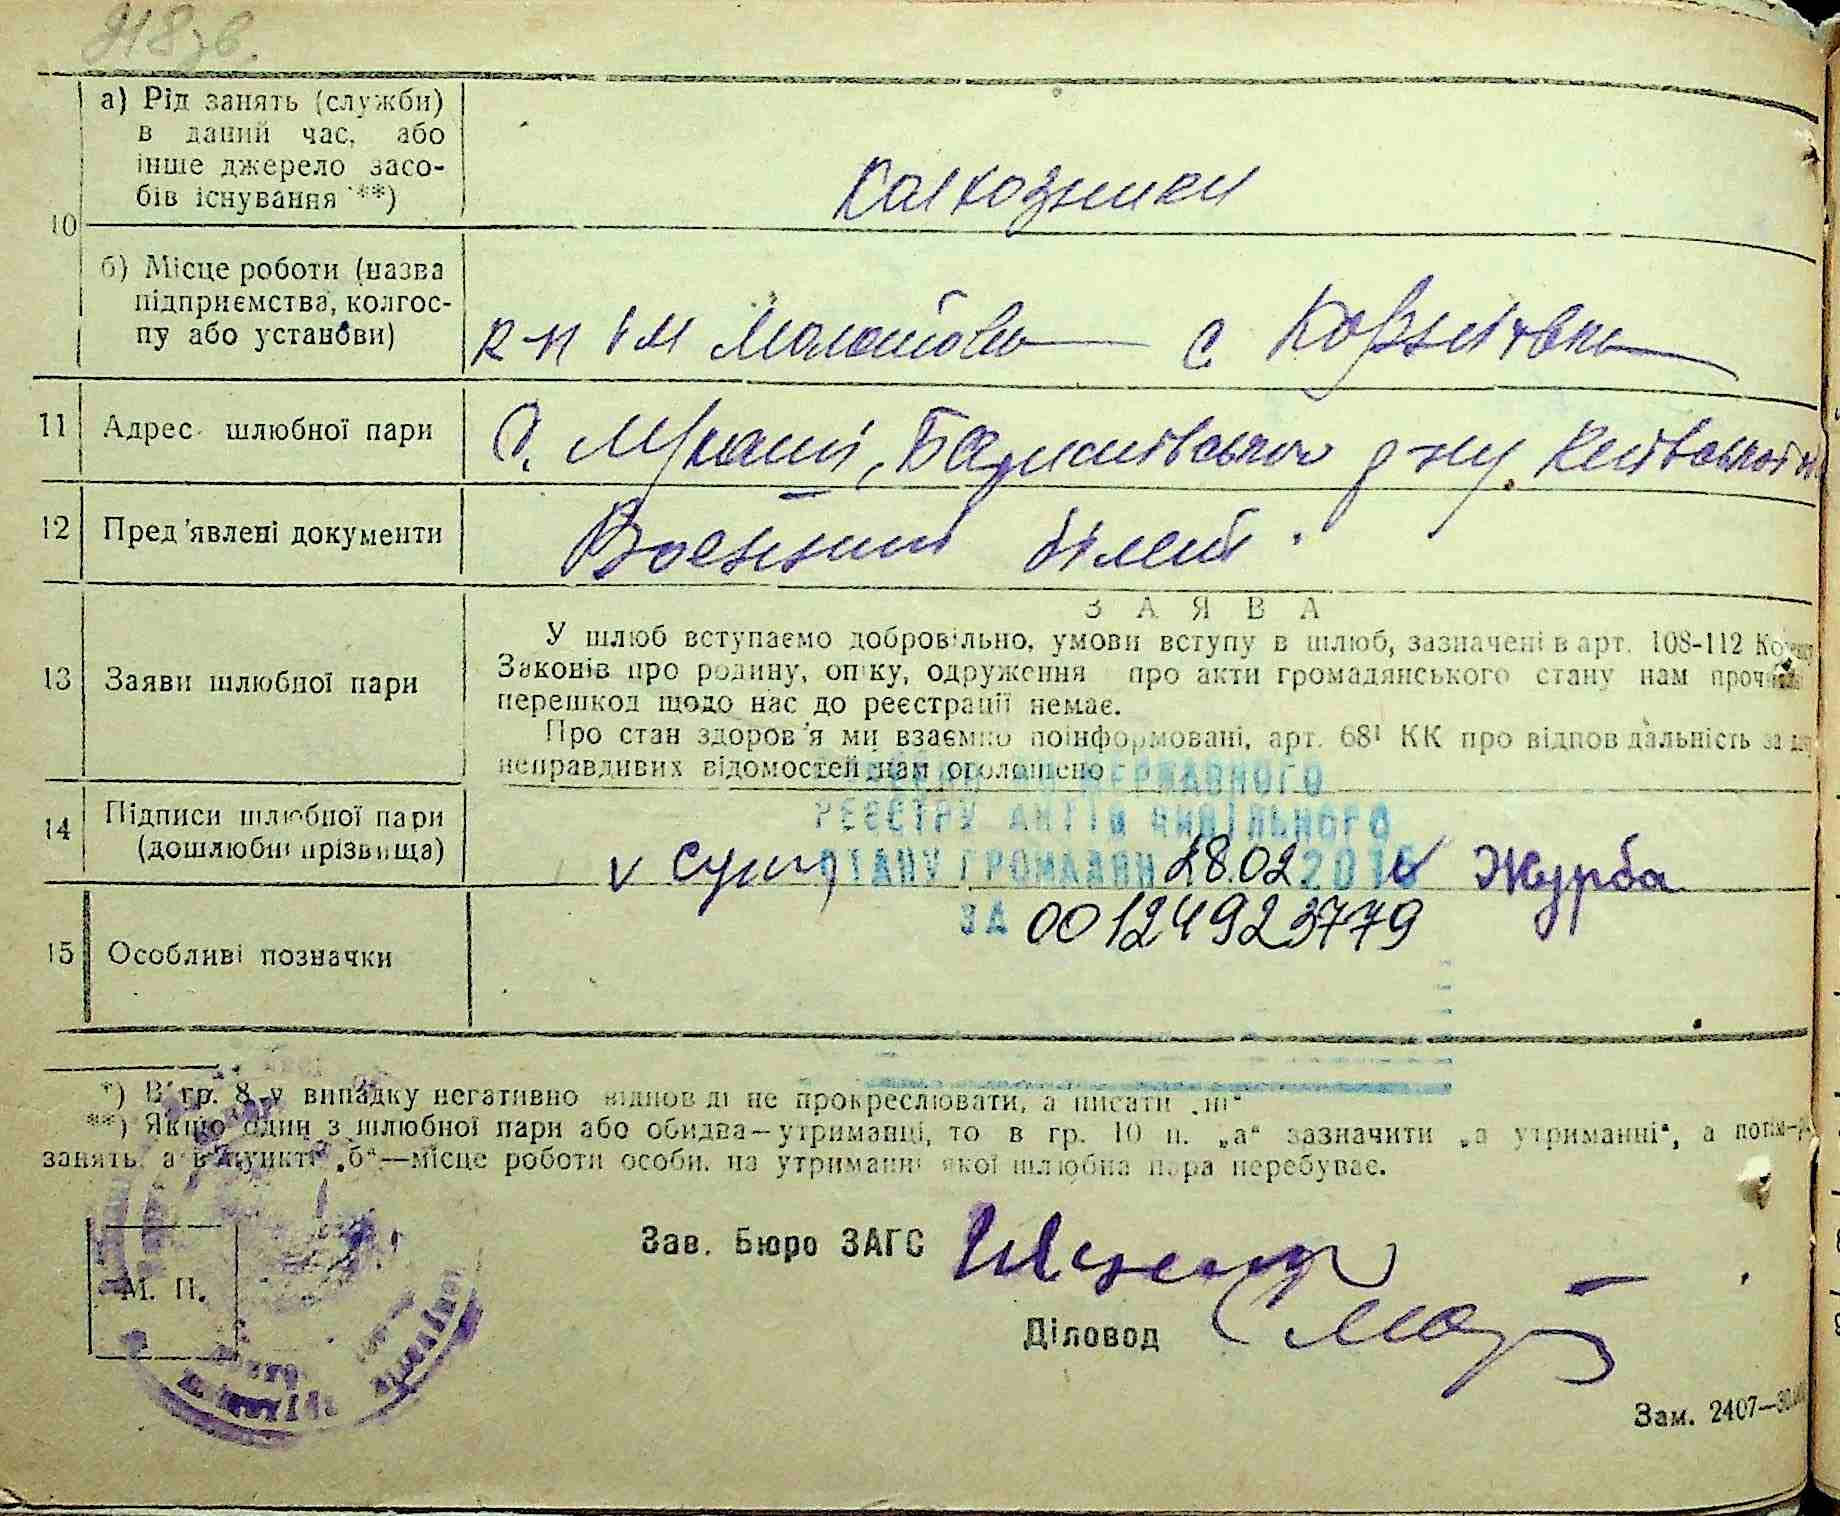 918 зв.
10
а) Рід занять (служби)
в даний час, або
інше джерело засо-
бів існування **)
Колхозники
б) Місце роботи (назва
підприємства, колгос-
пу або установи)
к-п ім Молотова с
11 Адрес шлюбної пари
с. , Баришівського р-ну, Київської
12 Пред'явлені документи
Военний білет.
13 Заяви шлюбної пари
ЗАЯВА
У шлюб вступаємо добровільно, умови вступу в шлюб, зазначені в арт. 108-112
Законів про родину, опіку, одруження про акти громадянського стану нам
перешкод щодо нас до реєстрації немає.
Про стан здоров'я ми взаємно поінформовані, арт. 68¹ КК про відповідальність за
неправдивих відомостей нам оголошено
ДЕРЖАВНОГО
РЕЄСТРУ АКТІВ ЦИВІЛЬНОГО
СТАНУ ГРОМАДЯН 28.02.
ЗА 00124923779
14 Підписи шлюбної пари
(дошлюбні прізвища)
v v Журба
15 Особливі позначки
*) В гр. 8 у випадку негативно відповіді не прокреслювати, а писати „ні“
**) Якщо один з шлюбної пари або обидва—утриманці, то в гр. 10 п. „а“ зазначити „а утриманні“, а
занять, а в пункті „б“—місце роботи особи, на утриманні якої шлюбна пара перебуває.
М. П.
Зав. Бюро ЗАГС
Діловод
Зам. 2407—